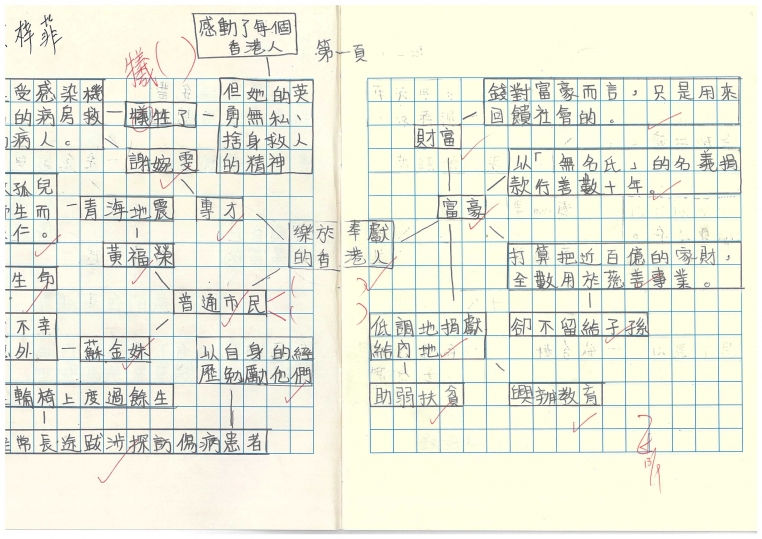 梓菲
感動了每個
香港人
第一頁
犧( )
受感染機
的病房救
病人。
犧牲了
但她的英
勇無私、
捨身救人
的精神
謝婉雯
孤兒
生而
仁。
青海地震
專才
黃福榮
生命
普通市民
樂於奉獻
的香港人
不幸
外
蘇金妹
以自身的經
歷勉勵他們
輪椅上度過餘生
常長途跋涉探訪傷病患者
錢對富豪而言，只是用來
回饋社會的。
財富
以「無名氏」的名義捐
款行善數十年。
富豪
打算把近百億的家財，
全數用於慈善事業。
低調地捐獻
給內地
卻不留給子孫
助弱扶貧
興辦教育